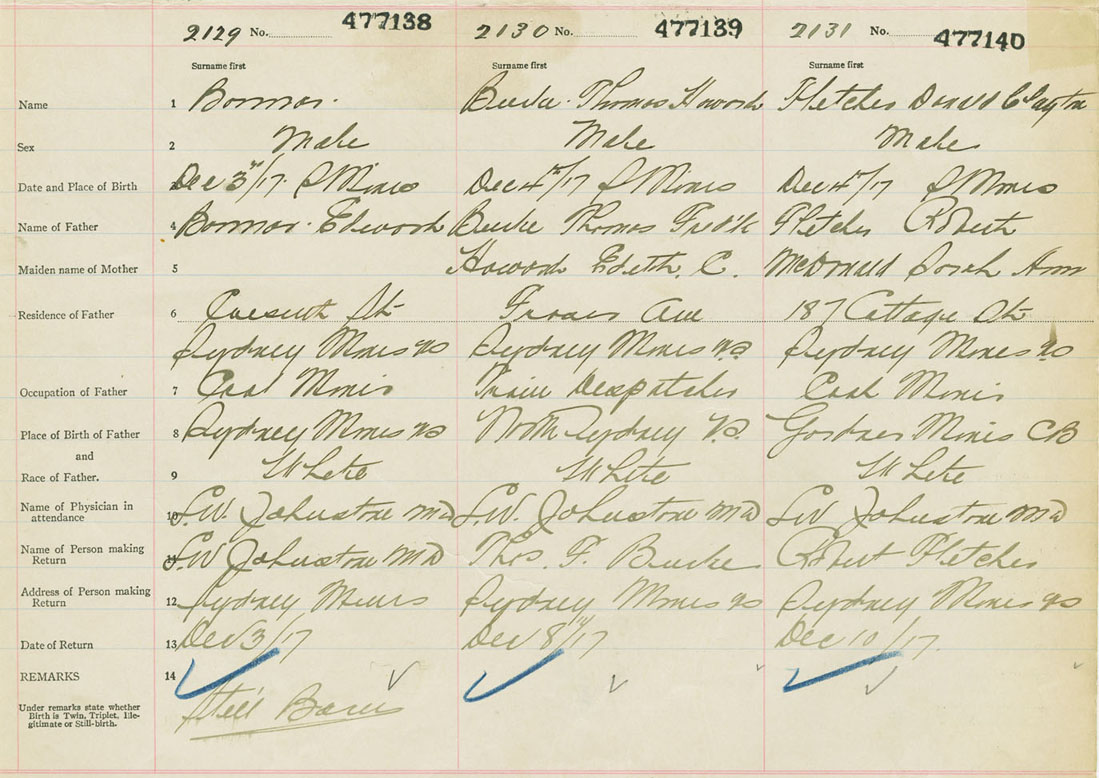 2129 No. 477138 2130 No. 477139 2131 No. 477140
Surname first Surname first Surname first
Name 1 Bonnar. Burke. Thomas Howard Fletcher Donald Clayton
Sex 2 Male Male Male
Date and Place of Birth 3 Dec 3rd/17. S Mines Dec 4th/17 S Mines Dec 4th/17 S Mines
Name of Father 4 Bonnar. Edward Burke Thomas Fred'k Fletcher Robert
Maiden name of Mother 5 Howard Edith. C. McDonald Sarah Ann
Residence of Father 6 St Ave 187 Cottage St
Sydney Mines NS Sydney Mines N.S. Sydney Mines NS
Occupation of Father 7 Coal Miner Train Despatcher Coal Miner
Place of Birth of Father 8 Sydney Mines NS North Sydney N.S. Gardner Mines CB
and
Race of Father. 9 White White White
Name of Physician in 10 L.W. Johnstone MD L.W. Johnstone MD LW Johnstone MD
attendance
Name of Person making 11 L.W Johnstone MD Thos. F. Burke Robert Fletcher
Return
Address of Person making 12 Sydney Mines Sydney Mines NS Sydney Mines NS
Return
Date of Return 13 Dec 3/17 Dec 8th/17 Dec 10/17.
REMARKS 14
Still Born
Under remarks state whether
Birth is Twin, Triplet, Ille-
gitimate or Still-birth.